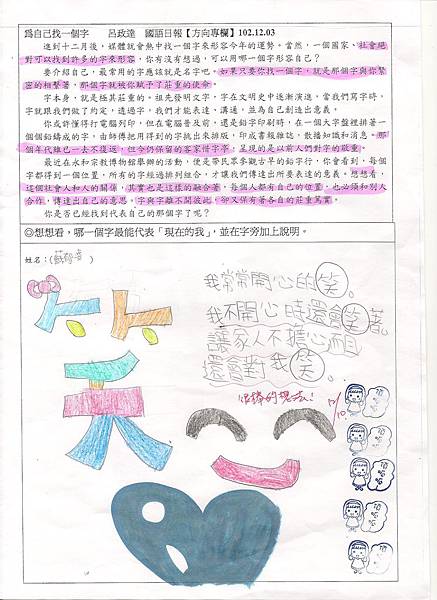 為自己找一個字 呂政達 國語日報【方向專欄】102.12.03
進到十二月後，媒體就會熱中找一個字來形容今年的運勢。當然，一個國家、社會絕
對可以找到許多的字來形容，你有沒有想過，可以用哪一個字形容自己？
要介紹自己，最常用的字應該就是名字吧。如果只要你找一個字，就是那個字與你緊
密的相繫著，那個字就被你賦予了莊重的使命。
字本身，就是極其莊重的。祖先發明文字，字在文明史中逐漸演進，當我們寫字時，
字就跟我們做了約定，透過字，我們才能表達、溝通，並為自己創造出意義。
你或許懂得行電腦列印，但在電腦普及前，還是鉛字印刷時，在一個大字盤裡排著一
個個鉛鑄成的字，由師傅把用得到的字挑出來排版，印成書報雜誌，散播知識和消息。那
個年代雖已一去不復返，但今仍保留的客家惜字亭，呈現的是以前人們對字的敬重。
最近在永和宗教博物館舉辦的活動，便是帶民眾參觀古早的鉛字行，你會看到，每個
字都得到一個位置，所有的字經過排列組合，才讓我們傳達出所要表達的意義。想想看，
這個社會人和人的關係，其實也是這樣的融合著，每個人都有自己的位置，也必須和別人
合作，傳達出自己的意思，字與字離不開彼此，卻又保有著各自的莊重篤實。
你是否已經找到代表自己的那個字了呢？
◎想想看，哪一個字最能代表「現在的我」，並在字旁加上說明。
姓名：(蘇)
笑
我常常開心的笑。
我不開心時還會笑著。
讓家人不擔心而且
還會對我笑。
很棒的想法！
12/10